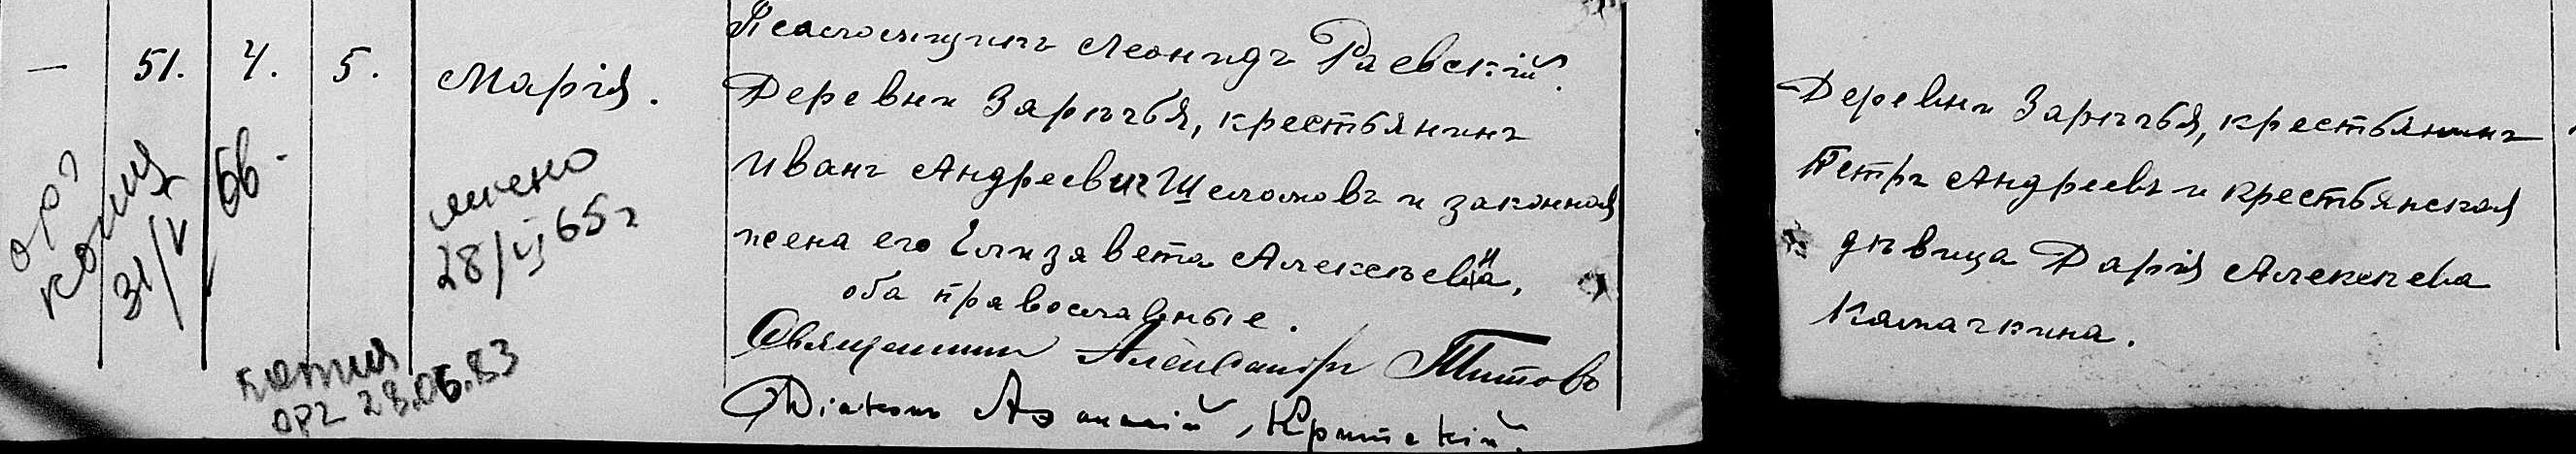 Псаломщикъ Леонидъ Раевскій.
— 51. 4. 5. Марія.
Деревни Зарѣчья, крестьянинъ
Иванъ Андреевичъ Шеломовъ и законная
жена его Елизавета Алексѣевна,
оба православные.
Священникъ Александръ Титовъ
Діаконъ Аѳанасій Критскій.
Деревни Зарѣчья, крестьянинъ
Петръ Андреевъ и крестьянская
дѣвица Дарія Алексѣева
Камачкина.
орг
копия
31/V 66-
28/VI 65 г
копия
орг 28.06.83